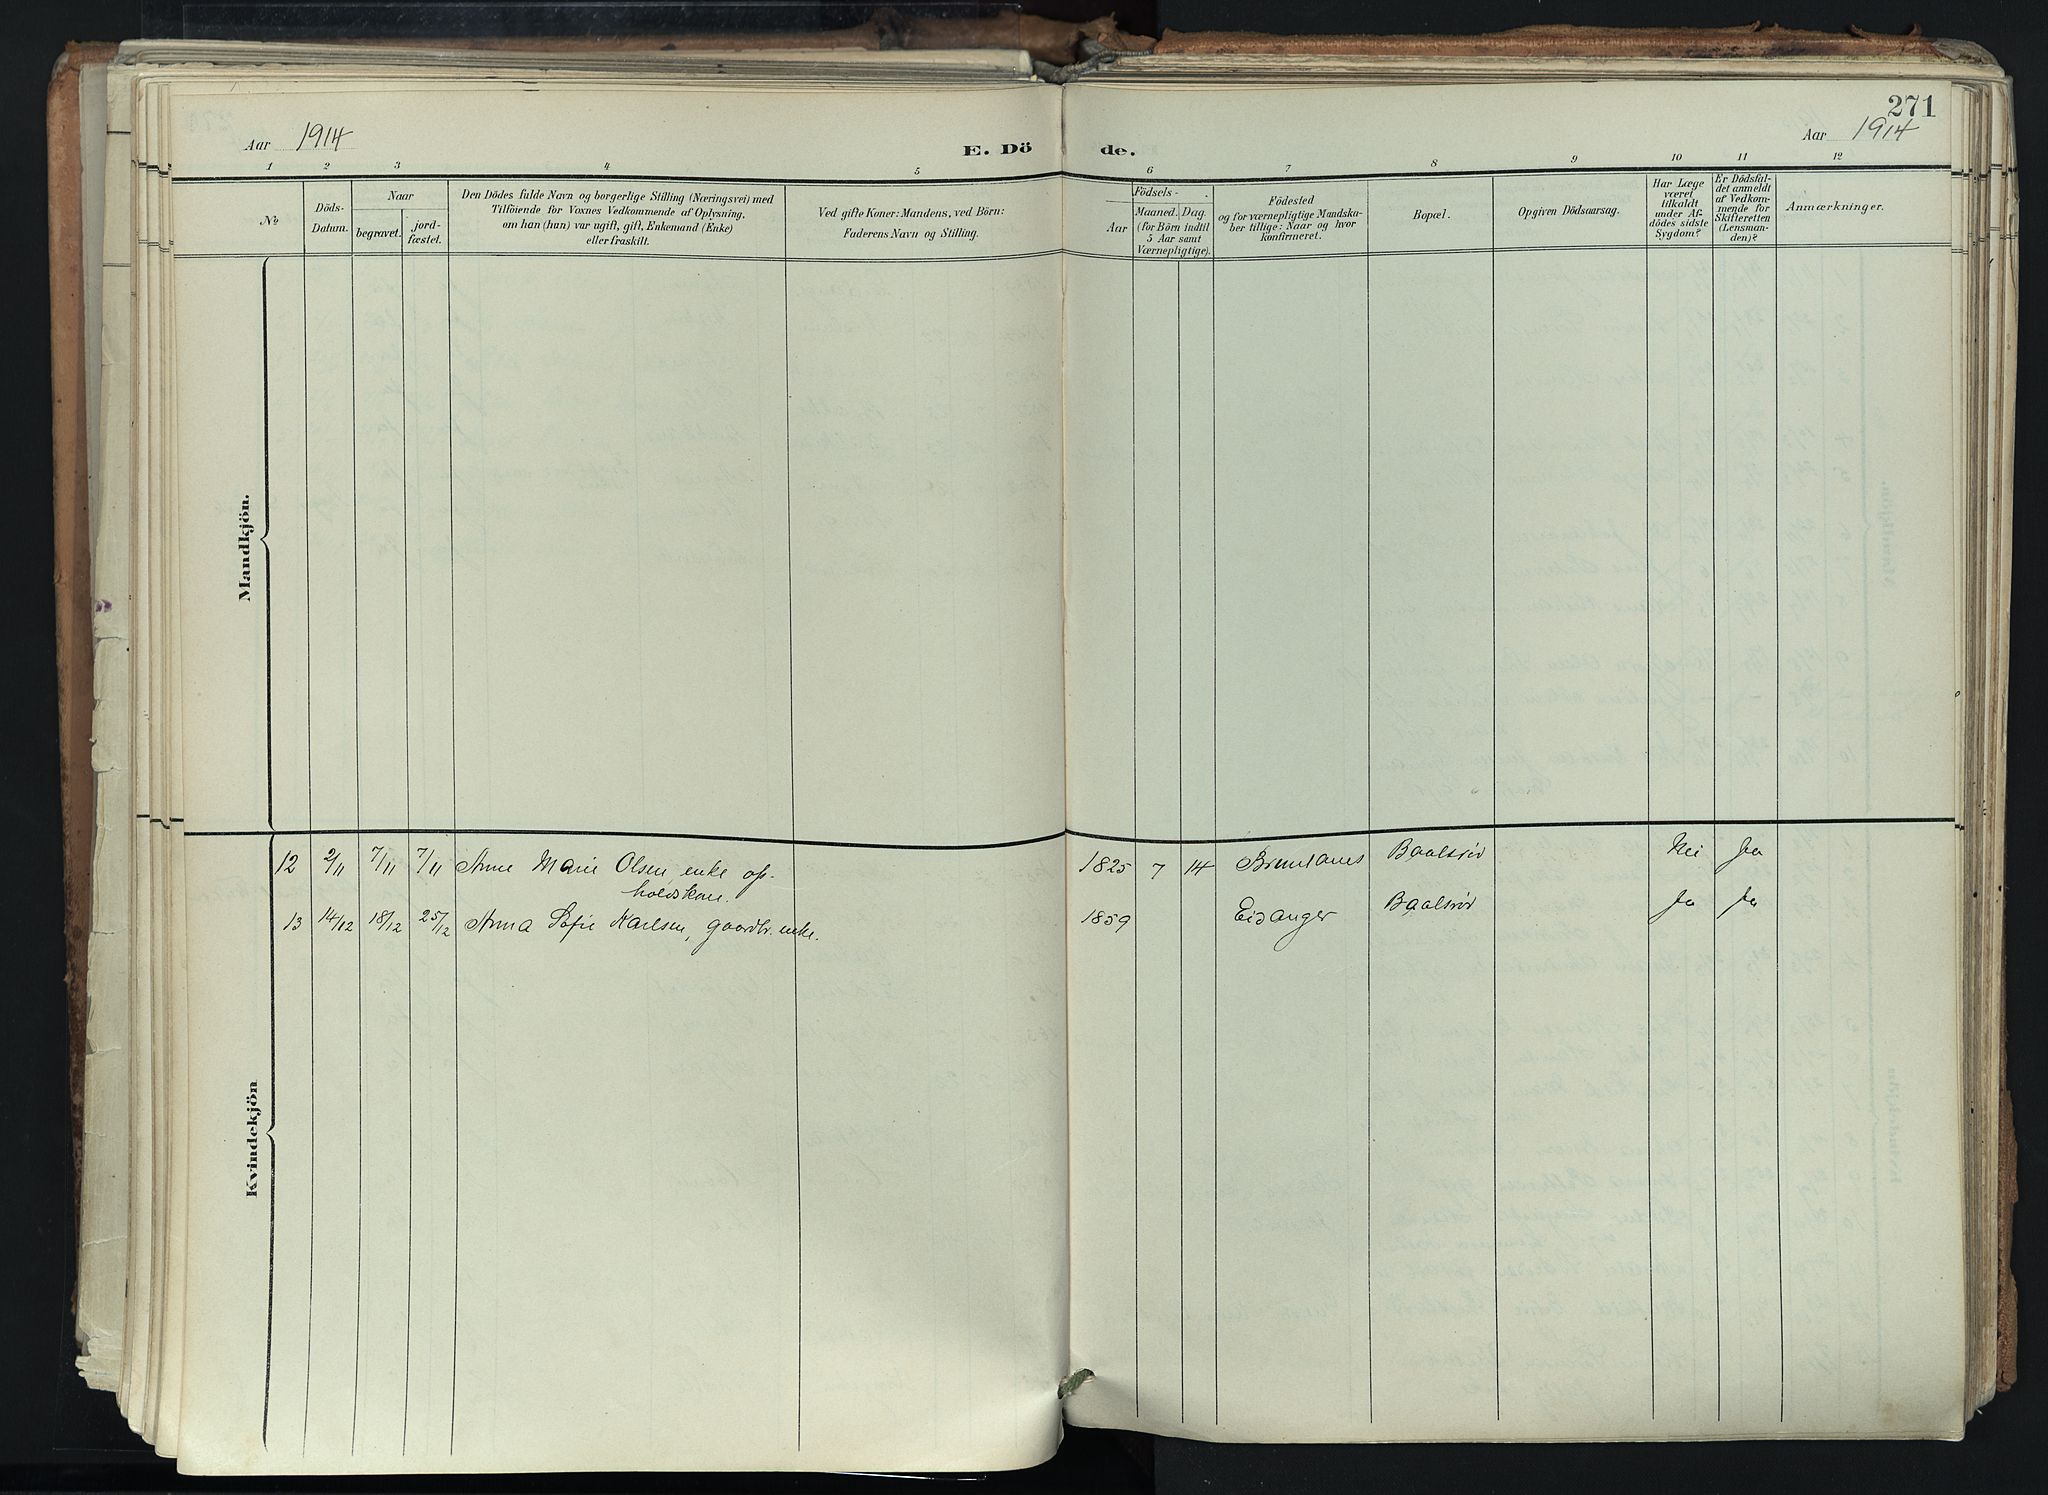 271
Aar 1914
E. Dö
de.
Aar 1914
1 2 3 4 5 6 7 8 9 10 11 12
No
Döds-
Datum.
Naar
begravet.
jord-
fæstet.
Den Dödes fulde Navn og borgerlige Stilling (Næringsvei) med
Tilföiende for Voxnes Vedkommende af Oplysning,
om han (hun) var ugift, gift, Enkemand (Enke)
eller fraskilt.
Ved gifte Koner: Mandens, ved Börn:
Faderens Navn og Stilling.
Födsels-
Aar
Maaned. Dag.
(for Börn indtil
5 Aar samt
Værnepligtige).
Födested
og for værnepligtige Mandska-
ber tillige: Naar og hvor
konfirmeret.
Bopæl.
Opgiven Dödsaarsag.
Har Læge
været
tilkaldt
under Af-
dödes sidste
Sygdom?
Er Dödsfal-
det anmeldt
af Vedkom-
mende for
Skifteretten
(Lensman-
den)?
Anmærkninger.
Mandkjön.
12 2/11 7/11 7/11 Anne Marie Olsen, enke op-
holdskone. 1825 7 14 Brunlanes Baalsrød Nei Ja
13 14/12 18/12 25/12 Anna Sofie Karlsen, gaardbr. enke. 1859 Eidanger Baalsrød Ja Ja
Kvindekjön